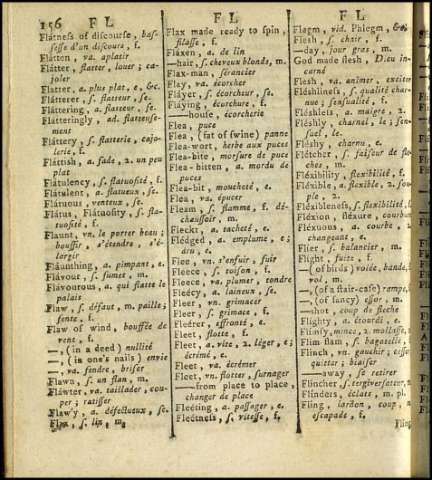 156 F L
Flátneſs of diſcourſe, baſ-
ſeſſe d'un diſcours, f.
Flátten, va. aplatir
Flátter, flatter, louer; ca-
joler
Flatter, a. plus plat, e, &c.
Flátterer, ſ. flatteur, ſe.
Fláttering, a. flatteur, ſe.
Flátteringly, ad. flatteuſe-
ment
Fláttery, ſ. flatterie, cajo-
lerie, f.
Fláttiſh, a. fade, 2. un peu
plat
Flátulency, ſ. flatuoſité, f.
Flátulent, a. flatueux, ſe.
Flátuous, venteux, ſe.
Flátus, Flátuoſity, ſ. fla-
tuoſité, f.
Flaunt, vn. ſe porter beau;
bouffir, s'étendre, s'é-
largir
Fláunthing, a. pimpant, e.
Flávour, ſ. fumet, m.
Flávourous, a. qui flatte le
palais
Flaw, ſ. défaut, m. paille;
fente, f.
Flaw of wind, bouffée de
vent, f.
—, (in a deed) nullité
—, (in one's nails) envie
—, va. fendre, briſer
Flawn, ſ. un flan, m.
Fláwter, va. taillader, cou-
per; ratiſſer
Flaw'y, a. défectueux, ſe.
Flax, ſ. lin, m.
F L
Flax made ready to ſpin,
filaſſe, f.
Fláxen, a. de lin
—hair, ſ. cheveux blonds, m.
Flax-man, ſerancier
Flay, va. écorcher
Fláyer, ſ. écorcheur, ſe.
Fláying, écorchure, f.
—houſe, écorcherie
Flea, puce
Flea, (fat of ſwine) panne
Flea-wort, herbe aux puces
Flea-bite, morſure de puce
Flea-bitten, a. mordu de
puces
Flea-bit, moucheté, e.
Flea, va. épucer
Fleam, ſ. flamme, f. dé-
chauſſoir, m.
Fleckt, a. tacheté, e.
Flédged, a. emplumé, e;
dru, e.
Flee, vn. s'enfuir, fuir
Fleece, ſ. toiſon, f.
Fleece, va. plumer, tondre
Fleécy, a. laineux, ſe.
Fleer, vn. grimacer
Fleer, ſ. grimace, f.
Fleérer, effronté, e.
Fleet, flotte, f.
Fleet, a. vîte, 2. léger, e;
écrémé, e.
Fleet, va. écrémer
Fleet, vn. flotter, ſurnager
—from place to place,
changer de place
Fleéting, a. paſſager, e.
Fleétneſs, ſ. vîteſſe, f.
F L
Flegm, vid. Phlegm, &c.
Fleſh, ſ. chair, f.
—day, jour gras, m.
God made fleſh, Dieu in-
carné
Fleſh, va. animer, exciter
Fléſhlineſs, ſ. qualité char-
nue; ſenſualité, f.
Fléſhleſs, a. maigre, 2.
Fléſhly, charnel, le; ſen-
ſuel, le.
Fléſhy, charnu, e.
Flétcher, ſ. faiſeur de flé-
ches, m.
Flexibílity, flexibilité, f.
Fléxible, a. flexible, 2. ſou-
ple, 2.
Fléxibleneſs, ſ. flexibilité,
Fléxion, fléxure, courbure
Fléxuous, a. courbe, 2.
changeant, e.
Flier, ſ. balancier, m.
Flight, fuite, f.
—(of birds) volée, bande, f.
vol, m.
—, (of a ſtair-caſe) rampe,
—, (of fancy) eſſor, m.
—ſhot, coup de fleche
Flighty, a. étourdi, e.
Flimſy, mince, 2. mollaſſe,
Flim flam, ſ. bagatelle,
Flinch, vn. gauchir; ceſſer
quitter; biaiſer
—away, ſe retirer
Flincher, ſ. tergiverſateur, 2
Flinders, éclats, m. pl.
Fling, lardon, coup,
eſcapade, f.